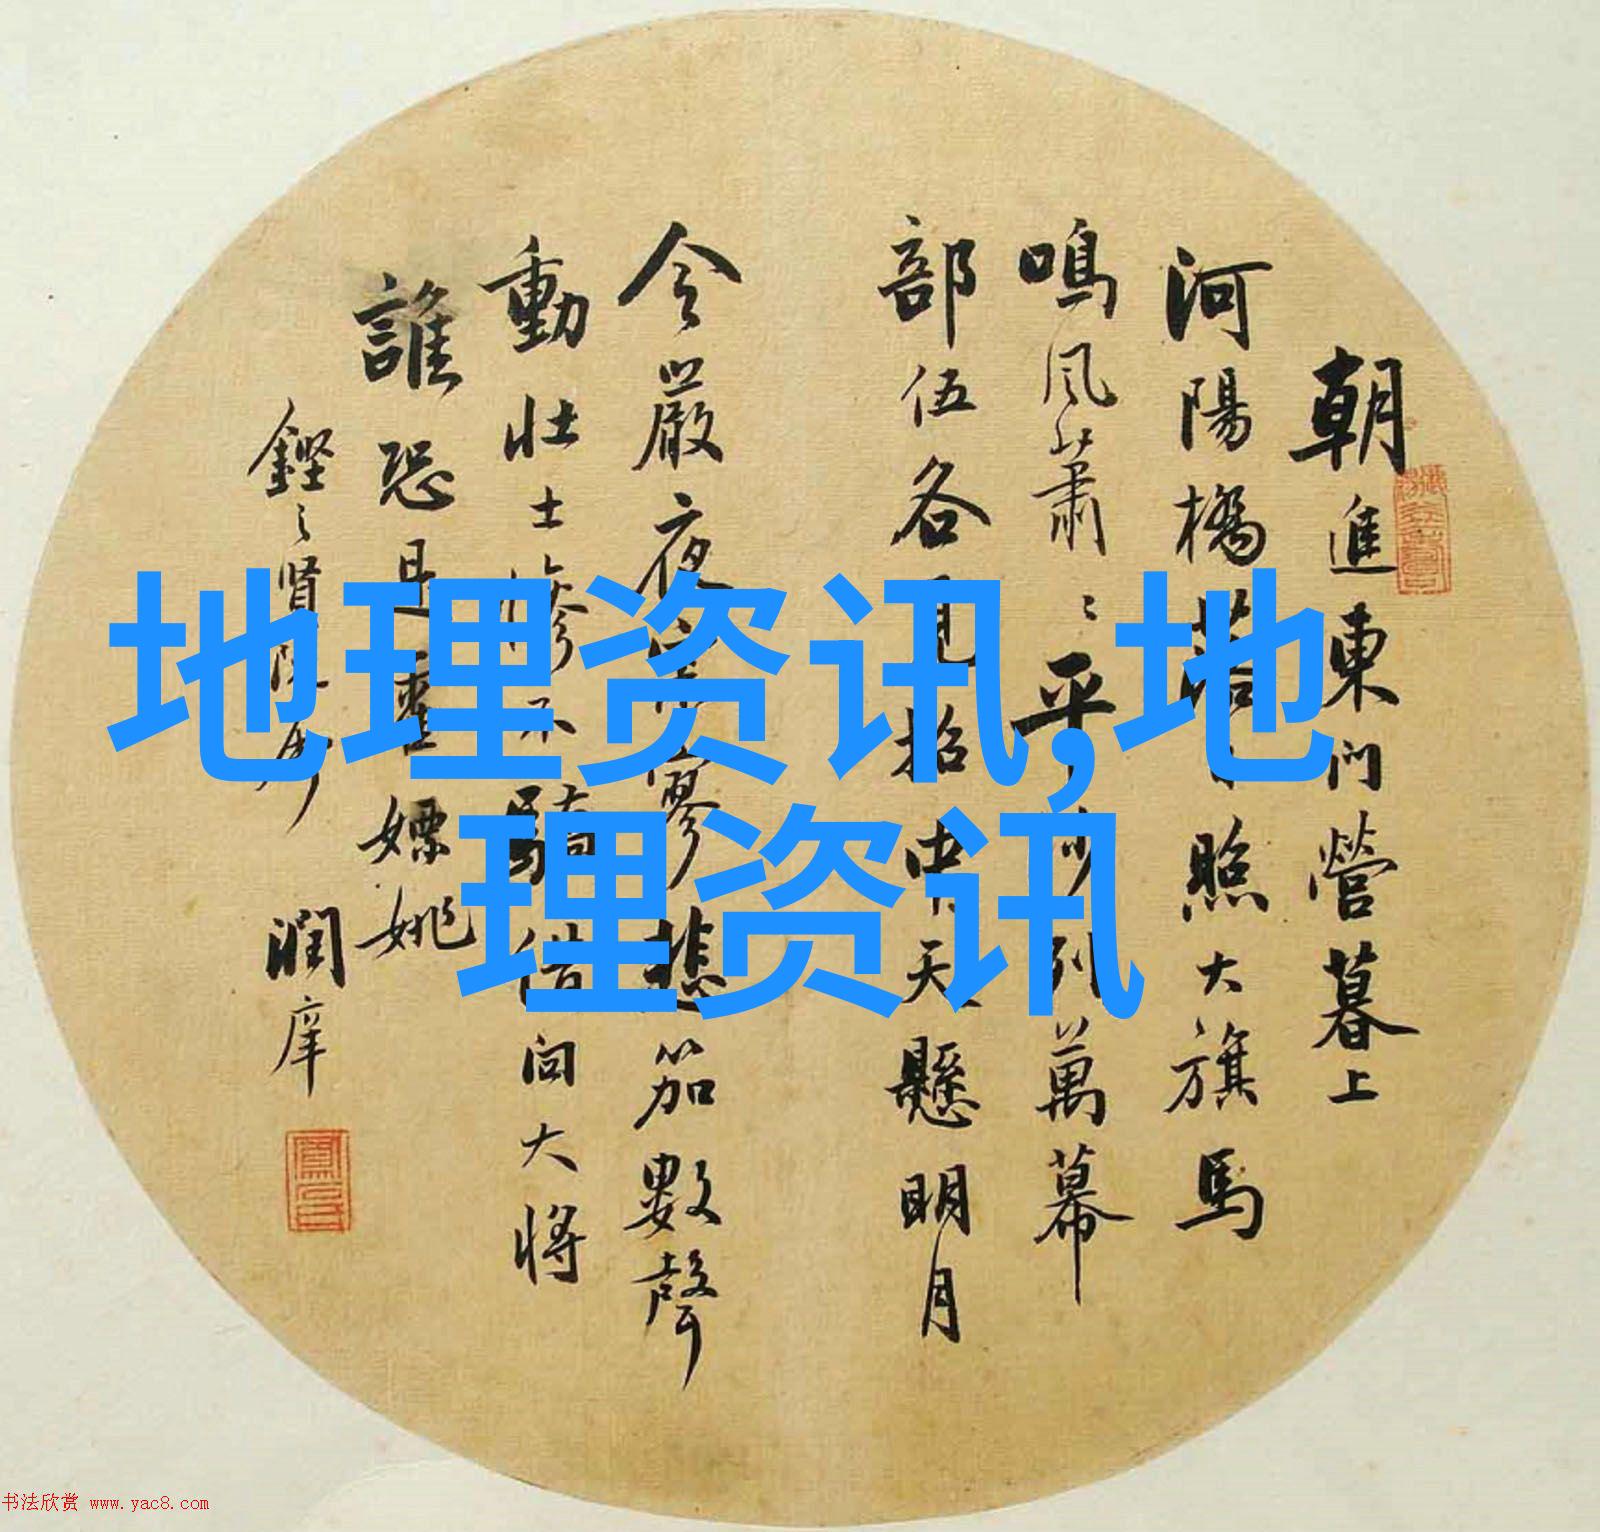 朝進東門營暮上
河陽橋落日照大旗馬
鳴風蕭〻平沙列萬幕
部伍各見招中天懸明月
令嚴夜寂寥悲笳數聲
動壯士慘不驕借问大將
誰恐是霍嫖姚
賢阮 潤庠
地理资讯,地
理资讯
书法欣赏 www.yac8.com